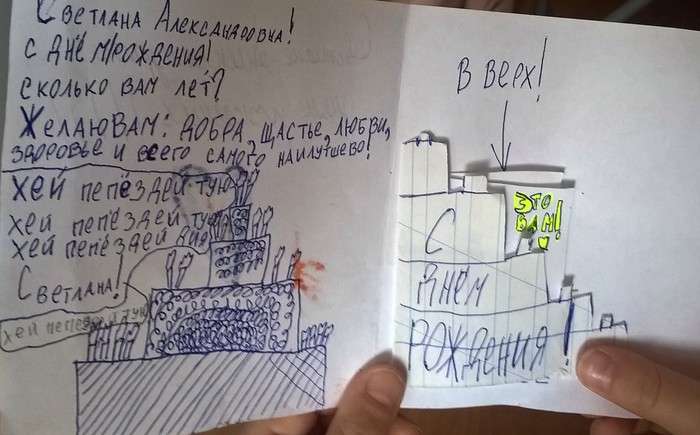 Светлана Александровна!
С ДНЁМ РОЖДЕНИЯ!
СКОЛЬКО ВАМ ЛЕТ?
ЖЕЛАЮ ВАМ: ДОБРА, ЩАСТЬЕ, ЛЮБВИ,
ЗДОРОВЬЕ И ВСЕГО САМОГО НАИЛУТШЕВО!
ХЕЙ ПЕПЁЗДЕЙ ТУЮ
ХЕЙ ПЕПЁЗДЕЙ ТУЮ
ХЕЙ ПЕПЁЗДЕЙ ДИЯ
Светлана!
ХЕЙ ПЕПЕЗДЕЙ ТУЮ
В ВЕРХ!
ЭТО
ВАМ!
С
ДНЁМ
РОЖДЕНИЯ!